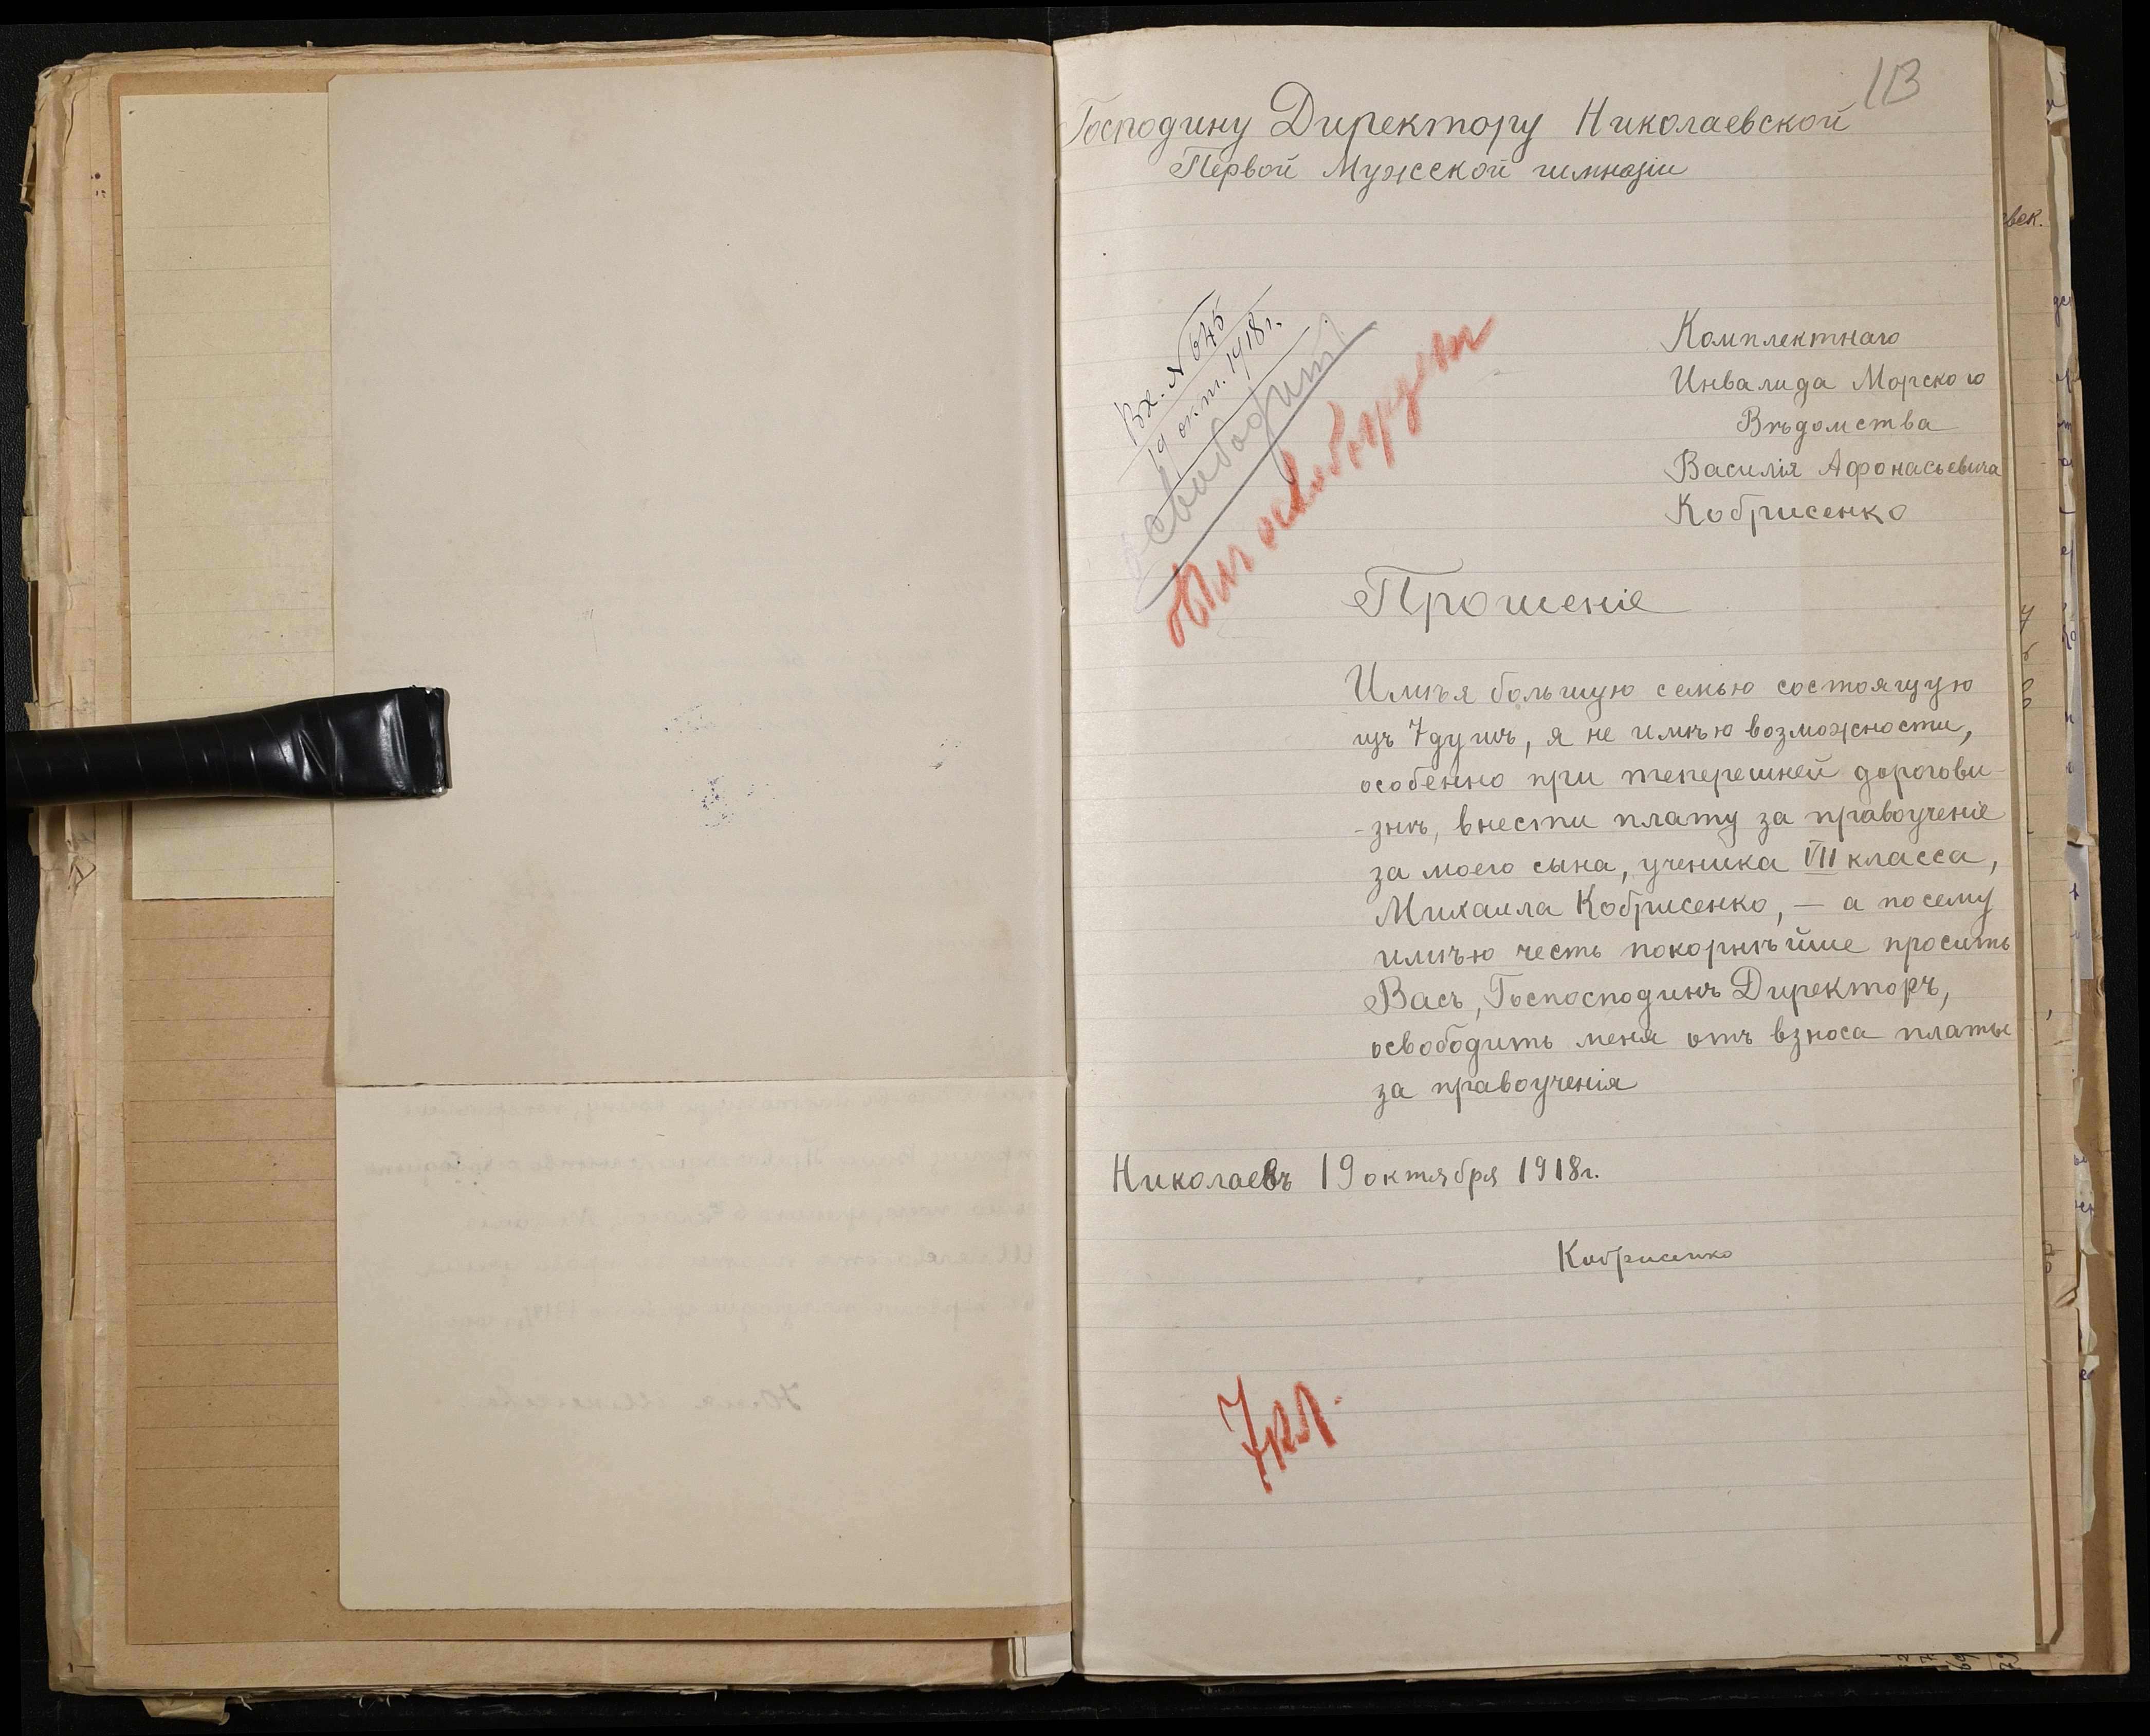 113
Господину Директору Николаевской
Первой Мужской гимназіи
Вх. № 645
19 окт. 1918 г.
освободить
освобожден
Комплектнаго
Инвалида Морского
Вѣдомства
Василія Афонасьевича
Кобрисенко
Прошеніе
Имѣя большую семью состоящую
изъ 7 душъ, я не имѣю возможности,
особенно при теперешней дорогови-
-знѣ, внести плату за правоученіе
за моего сына, ученика VII класса,
Михаила Кобрисенко, — а посему
имѣю честь покорнѣйше просить
Васъ, Госпосподинъ Директоръ,
освободить меня отъ взноса платы
за правоученія
Николаевъ 19 октября 1918 г.
Кобрисенко
7 кл.